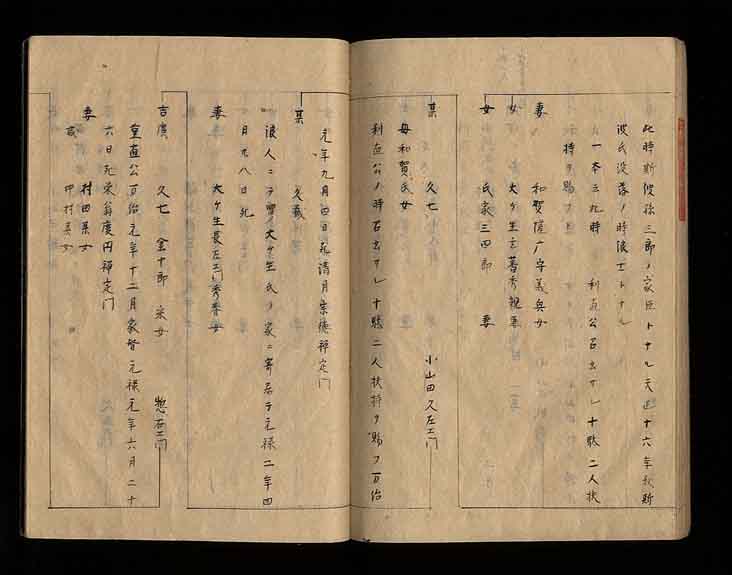 此時斯波孫三郎ノ家臣トナル天正十六年秋斯
波氏没落ノ時浪士トナル
一本ニ九時 利直公召出サレ十駄二人扶
持ヲ賜フ
妻 和賀薩广守義兵女
女 大ケ生玄蕃秀親妻
女 氏家三四郎 妻
某 久七 小山田久左エ門
母和賀氏女
利直公ノ時召出サレ十駄二人扶持ヲ賜フ万治
元年九月四日死清月宗徳禅定門
某 久蔵
浪人ニテ曽ノ大ケ生氏ノ家ニ寄居ス元禄二年四
月九八日死
妻 大ケ生長左エ門秀春女
吉廣 久七 金十郎 采女 惣右エ門
重直公万治元年十二月家督元禄元年六月二十
六日死栄翁慶円禅定門
妻 村田某女
或 中村某女